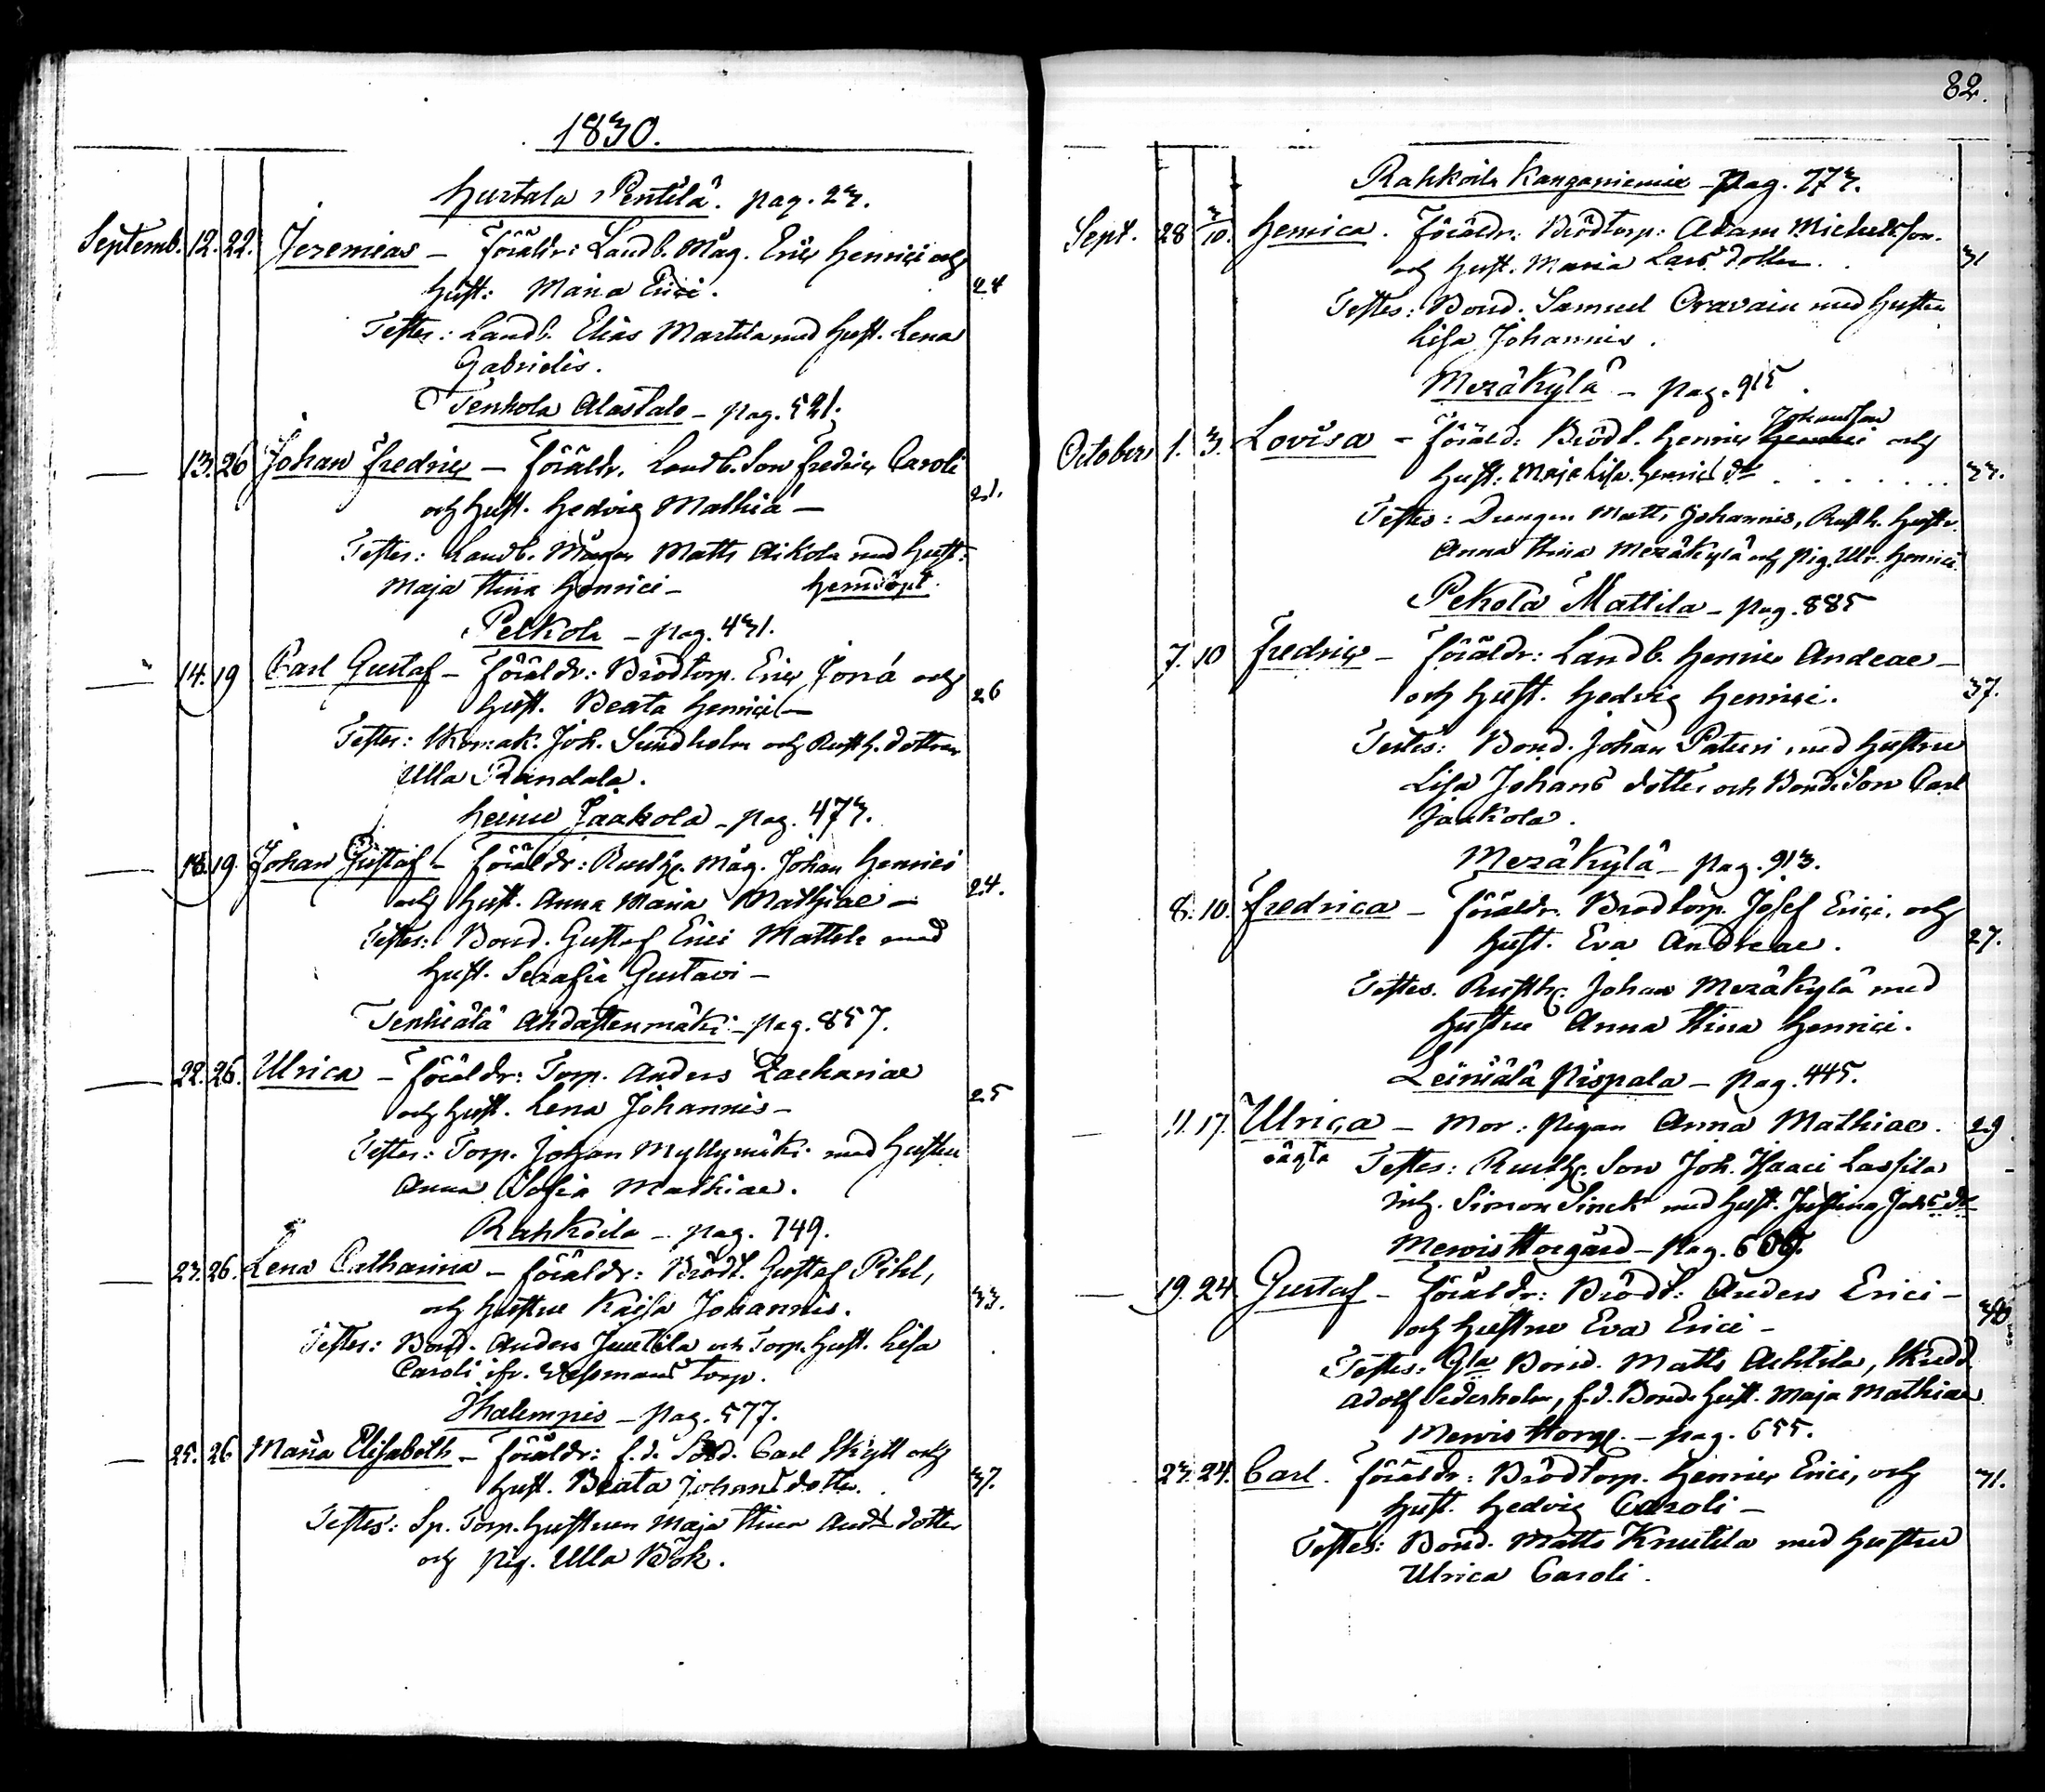 1830.
Hurtala Pentilä. pag. 23.
Septemb. 12. 22. Jeremias – Föräldr: Landb. Måg. Eric Henrici och
Hust: Maria Erici. 24
Testes: Landb. Elias Martila med Hust. Lena
Gabrielis.
Tenhola Alastalo – pag. 521.
— 13. 26 Johan Fredric – Föräldr. Landb. Son Fredric Caroli
och Hust. Hedvig Mathiä – 21.
Testes: Landb. Mågen Matts Aikola med Hust:
Maja Stina Henrici – Hemdöpt.
Pelkola – pag. 431.
— 14. 19 Carl Gustaf – Föräldr: Brödtorp. Eric Jonä och
Hust. Beata Henrici – 26
Testes: Skomak. Joh. Sundholm och Rusth. dottren
Ulla Randala.
Heinu Jaakola – pag. 473.
— 18. 19. Johan Gustaf – Föräldr: Rusth. Måg. Johan Henrici
och Hust. Anna Maria Mathiae – 24.
Testes: Bond. Gustaf Erici Mattila med
Hust. Serafia Gustavi –
Tenhiälä Ahdastenmäki – pag. 857.
— 22. 26. Ulrica – Föräldr: Torp. Anders Zachariae
och Hust. Lena Johannis – 25
Testes: Torp. Johan Myllymäki med Hustru
Anna Sofia Mathiae.
Rahkoila – pag. 749.
— 23. 26. Lena Catharina – Föräldr: Brödt. Gustaf Pihl,
och Hustru Kaisa Johannis. 33.
Testes: Bond. Anders Juutila och Torp. Hust. Lisa
Caroli ifr. torp.
Thalempis – pag. 577.
— 25. 26 Maria Elisabeth – Föräldr: f.d. Sold. Carl Skytt och
Hust. Beata Johansdotter. 37.
Testes: Sp. Torp. Hustrun Maja Stina Ands dotter
och Pig. Ulla Bök.
82.
Rahkoila Kanganiemi – pag. 773.
Sept. 28 3/10. Henrica. Föräldr: Brödtorp: Adam Michels Son.
och Hust. Maria Lars dotter. 31
Testes: Bond. Samuel Oravain med Hustru
Lisa Johannis.
Meräkylä – pag. 915.
Johansson
October 1. 3. Lovisa – Föräld: Brödt. Henric Henrici och
Hust. Maja Lisa Henrics dr . . . . . . . 33.
Testes: Drengen Matts Johannis, Rusth. Hustr.
Anna Stina Meräkylä och Pig. Ulr. Henrici.
Pekola Mattila – pag. 885
7. 10 Fredric – Föräldr: Landb. Henric Andeae –
och Hust. Hedvig Henrici. 37.
Testes: Bond. Johan Paturi med Hustru
Lisa Johans dotter och Bonde Son Carl
Jaakola.
Meräkylä – pag. 913.
8. 10. Fredrica – Föräldr. Brödtorp. Josef Erici, och
Hust. Eva Andreae. 27.
Testes. Rusth. Johan Meräkylä med
Hustru Anna Stina Henrici.
Leiniälä Pispala – pag. 445.
— 11. 17. Ulrica – Mor: Pigan Anna Mathiae. 29.
oägta Testes: Rusth. Son Joh. Isaaci Lassila
Inh. Simon Sinck med Hust. Justina Johs dr
Mervis Storgård – pag. 606.
— 19. 24. Gustaf – Föräldr: Brödt: Anders Erici –
och Hustru Eva Erici – 40
Testes: Gla Bond. Matts Achtila, Skredd.
Adolf Cederholm, f.d. Bond. Hust. Maja Mathiae
Mervis Storg. – pag. 655.
23. 24. Carl. Föräldr: Brödtorp. Henric Erici, och
Hust. Hedvig Caroli – 31.
Testes: Bond. Matts Knutila med Hustru
Ulrica Caroli.